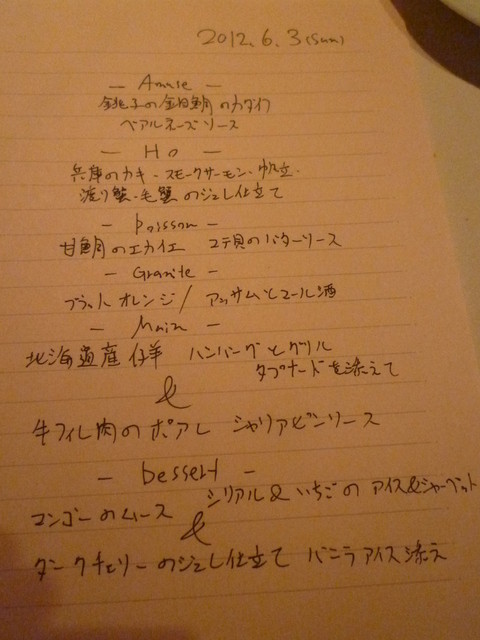 2012. 6. 3 (sun)
— Amuse —
銚子の金目鯛のカダイフ
ベアルネーズソース
— Ho —
兵庫のカキ・スモークサーモン・帆立・
渡り蟹・毛蟹のジュレ仕立て
— Poisson —
甘鯛のエカイエ 2テ貝のバターソース
— Granite —
ブラットオレンジ / アッサムとマール酒
— Main —
北海道産仔羊 ハンバーグとグリル
タプナードを添えて
&
牛フィレ肉のポアレ シャリアピンソース
— Dessert —
シリアル & いちごの アイス&シャーベット
マンゴーのムース
&
ダークチェリーのジュレ仕立て バニラアイス添え